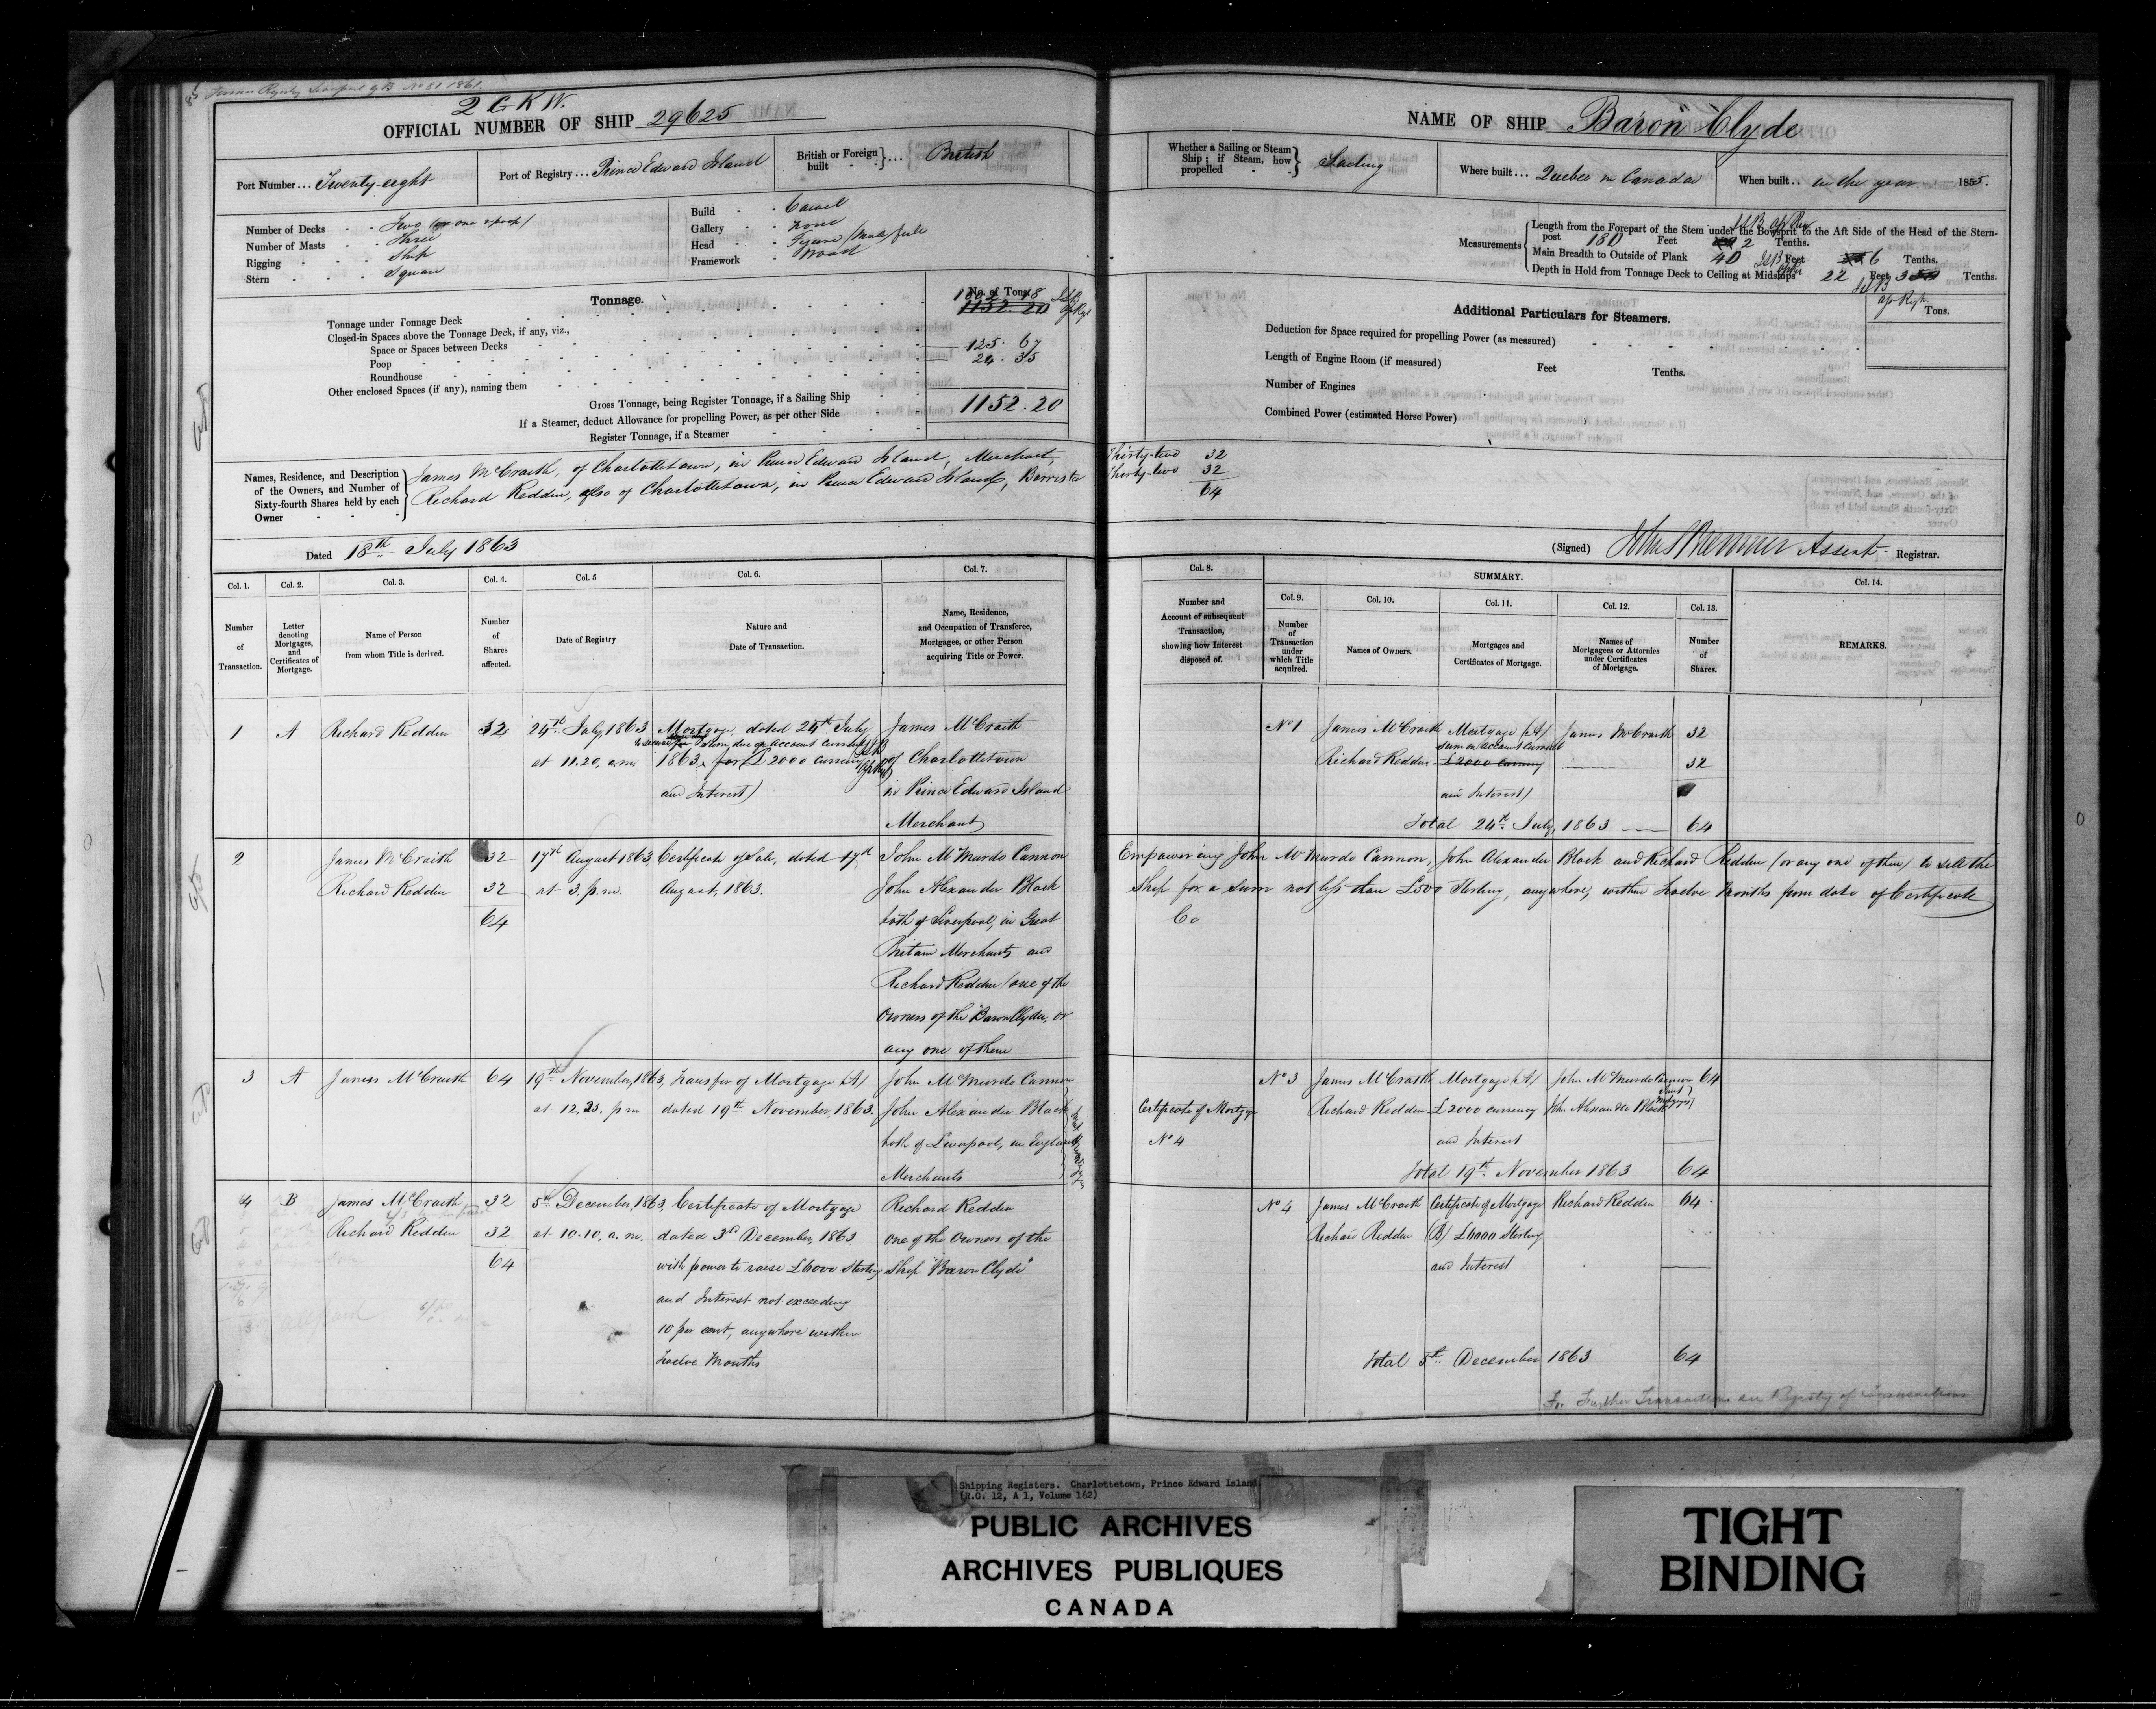 Former Registry Liverpool G B No 81 1861.
2 G K W.
OFFICIAL NUMBER OF SHIP 29625
Port Number ... Twenty-eight
Port of Registry ... Prince Edward Island
British or Foreign built ... British
Number of Decks Two (or one & poop)
Number of Masts Three
Rigging Ship
Stern Square
Build Carvel
Gallery None
Head Figure (Male full
Framework Wood
Tonnage.
No. of Tons.
Tonnage under Tonnage Deck 1002.18 1152.20
Closed-in Spaces above the Tonnage Deck, if any, viz.,
Space or Spaces between Decks
Poop 125.67
Roundhouse 24.35
Other enclosed Spaces (if any), naming them
Gross Tonnage, being Register Tonnage, if a Sailing Ship 1152.20
If a Steamer, deduct Allowance for propelling Power, as per other Side
Register Tonnage, if a Steamer
Names, Residence, and Description of the Owners, and Number of Sixty-fourth Shares held by each Owner
James McCraith, of Charlottetown, in Prince Edward Island, Merchant,
Richard Reddin, also of Charlottetown, in Prince Edward Island, Barrister
Dated 18th July 1863
NAME OF SHIP "Baron Clyde
Whether a Sailing or Steam Ship; if Steam, how propelled Sailing
Where built ... Quebec in Canada
When built .. in the year 1855.
Measurements
Length from the Forepart of the Stem under the Bowsprit to the Aft Side of the Head of the Stern-
post 180 Feet 2 Tenths.
Main Breadth to Outside of Plank 40 Feet 6 Tenths.
Depth in Hold from Tonnage Deck to Ceiling at Midships 22 Feet 3 Tenths.
Additional Particulars for Steamers.
Tons.
Deduction for Space required for propelling Power (as measured)
Length of Engine Room (if measured) Feet Tenths.
Number of Engines
Combined Power (estimated Horse Power)
Thirty-two 32
Thirty-two 32
64
(Signed) Assist Registrar.
Col. 1. Col. 2. Col. 3. Col. 4. Col. 5 Col. 6. Col. 7.
Number of Transaction.
Letter denoting Mortgages, and Certificates of Mortgage.
Name of Person from whom Title is derived.
Number of Shares affected.
Date of Registry
Nature and Date of Transaction.
Name, Residence, and Occupation of Transferee, Mortgagee, or other Person acquiring Title or Power.
1 A Richard Reddin 32 24th July 1863 Mortgage, dated 24th July James McCraith
to secure sum due on account current
at 11.20, a.m. 1863, for (£2000 currency of Charlottetown
and Interest) in Prince Edward Island
Merchant
2 James McCraith 32 17th August 1863, Certificate of Sale, dated 17th John McMurdo Cannon
Richard Reddin 32 at 3, p.m. August, 1863. John Alexander Black
64 both of Liverpool, in Great
Britain Merchants and
Richard Reddin (one of the
Owners of the "Baron Clyde, or
any one of them
3 A James McCraith 64 19th November, 1863, Transfer of Mortgage (A) John McMurdo Cannon
at 12,23. pm dated 19th November, 1863. John Alexander Black
both of Liverpool, in England,
Merchants
4 B James McCraith 32 5th December, 1863, Certificate of Mortgage Richard Reddin
Richard Reddin 32 at 10.10, a.m. dated 3rd December, 1863 one of the Owners of the
64 with power to raise £6000 Sterling Ship "Baron Clyde"
and Interest not exceeding
10 per cent, anywhere within
Twelve Months
Col. 8. SUMMARY. Col. 14.
Col. 9. Col. 10. Col. 11. Col. 12. Col. 13.
Number and Account of subsequent Transaction, showing how Interest disposed of.
Number of Transaction under which Title acquired.
Names of Owners.
Mortgages and Certificates of Mortgage.
Names of Mortgagees or Attornies under Certificates of Mortgage.
Number of Shares.
REMARKS.
No 1 James McCraith Mortgage (A) James McCraith 32
sum on account current
Richard Reddin £2000 currency 32
and Interest)
Total 24th July, 1863 64
Empowering John McMurdo Cannon, John Alexander Black and Richard Reddin (or any one of them) to sell the
Ship for a sum not less than £500 Sterling, anywhere, within Twelve Months from date of Certificate
No 3 James McCraith Mortgage (A) John McMurdo Cannon 64
Certificate of Mortgage Richard Reddin £2000 currency John Alexander Black
No 4 and Interest
Total 19th November 1863 64
No 4 James McCraith Certificate of Mortgage Richard Reddin 64
Richard Reddin (B) £6000 Sterling
and Interest
Total 5th December 1863 64
For Further Transactions see Registry of Transactions
Shipping Registers. Charlottetown, Prince Edward Island
(R.G. 12, A 1, Volume 162)
PUBLIC ARCHIVES
ARCHIVES PUBLIQUES
CANADA
TIGHT
BINDING